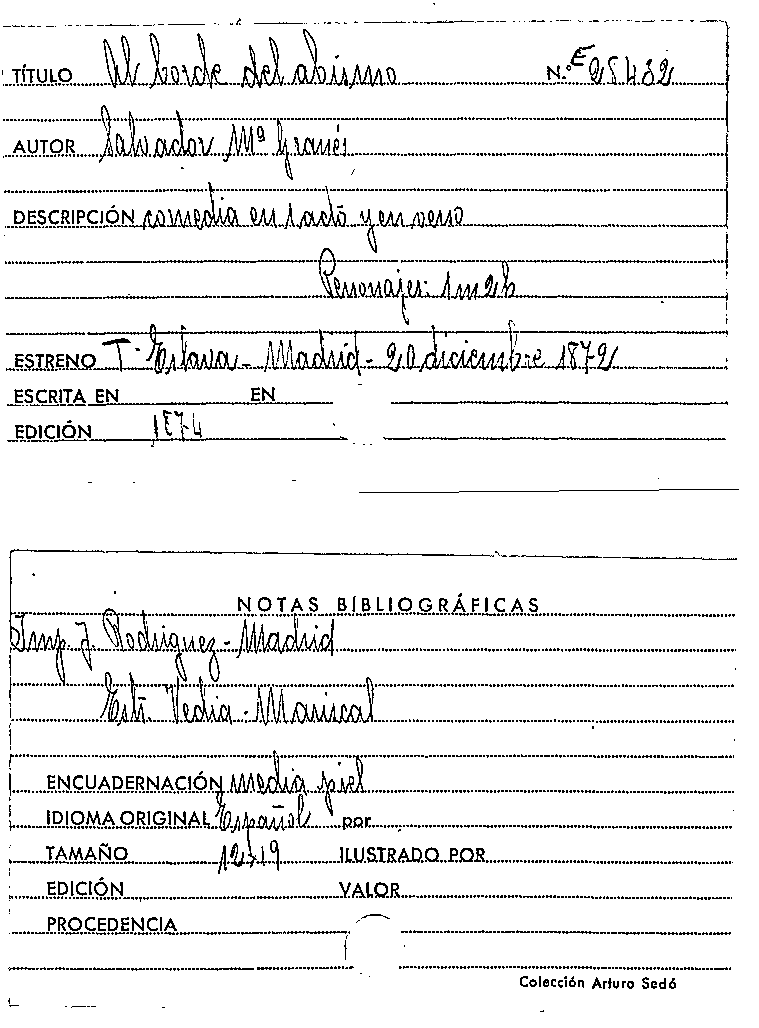 TÍTULO Al borde del abismo N.º E 25432
AUTOR Salvador Mª Granés
DESCRIPCIÓN comedia en 1 acto y en verso
Personajes: 1m2h
ESTRENO T. Eslava - Madrid - 20 diciembre 1872
ESCRITA EN EN
EDICIÓN 1874
NOTAS BIBLIOGRÁFICAS
Imp. J. Rodriguez - Madrid
Estr. Vedia - Mariscal
ENCUADERNACIÓN media piel
IDIOMA ORIGINAL Español por
TAMAÑO 12x19 ILUSTRADO POR
EDICIÓN VALOR
PROCEDENCIA
Colección Arturo Sedó